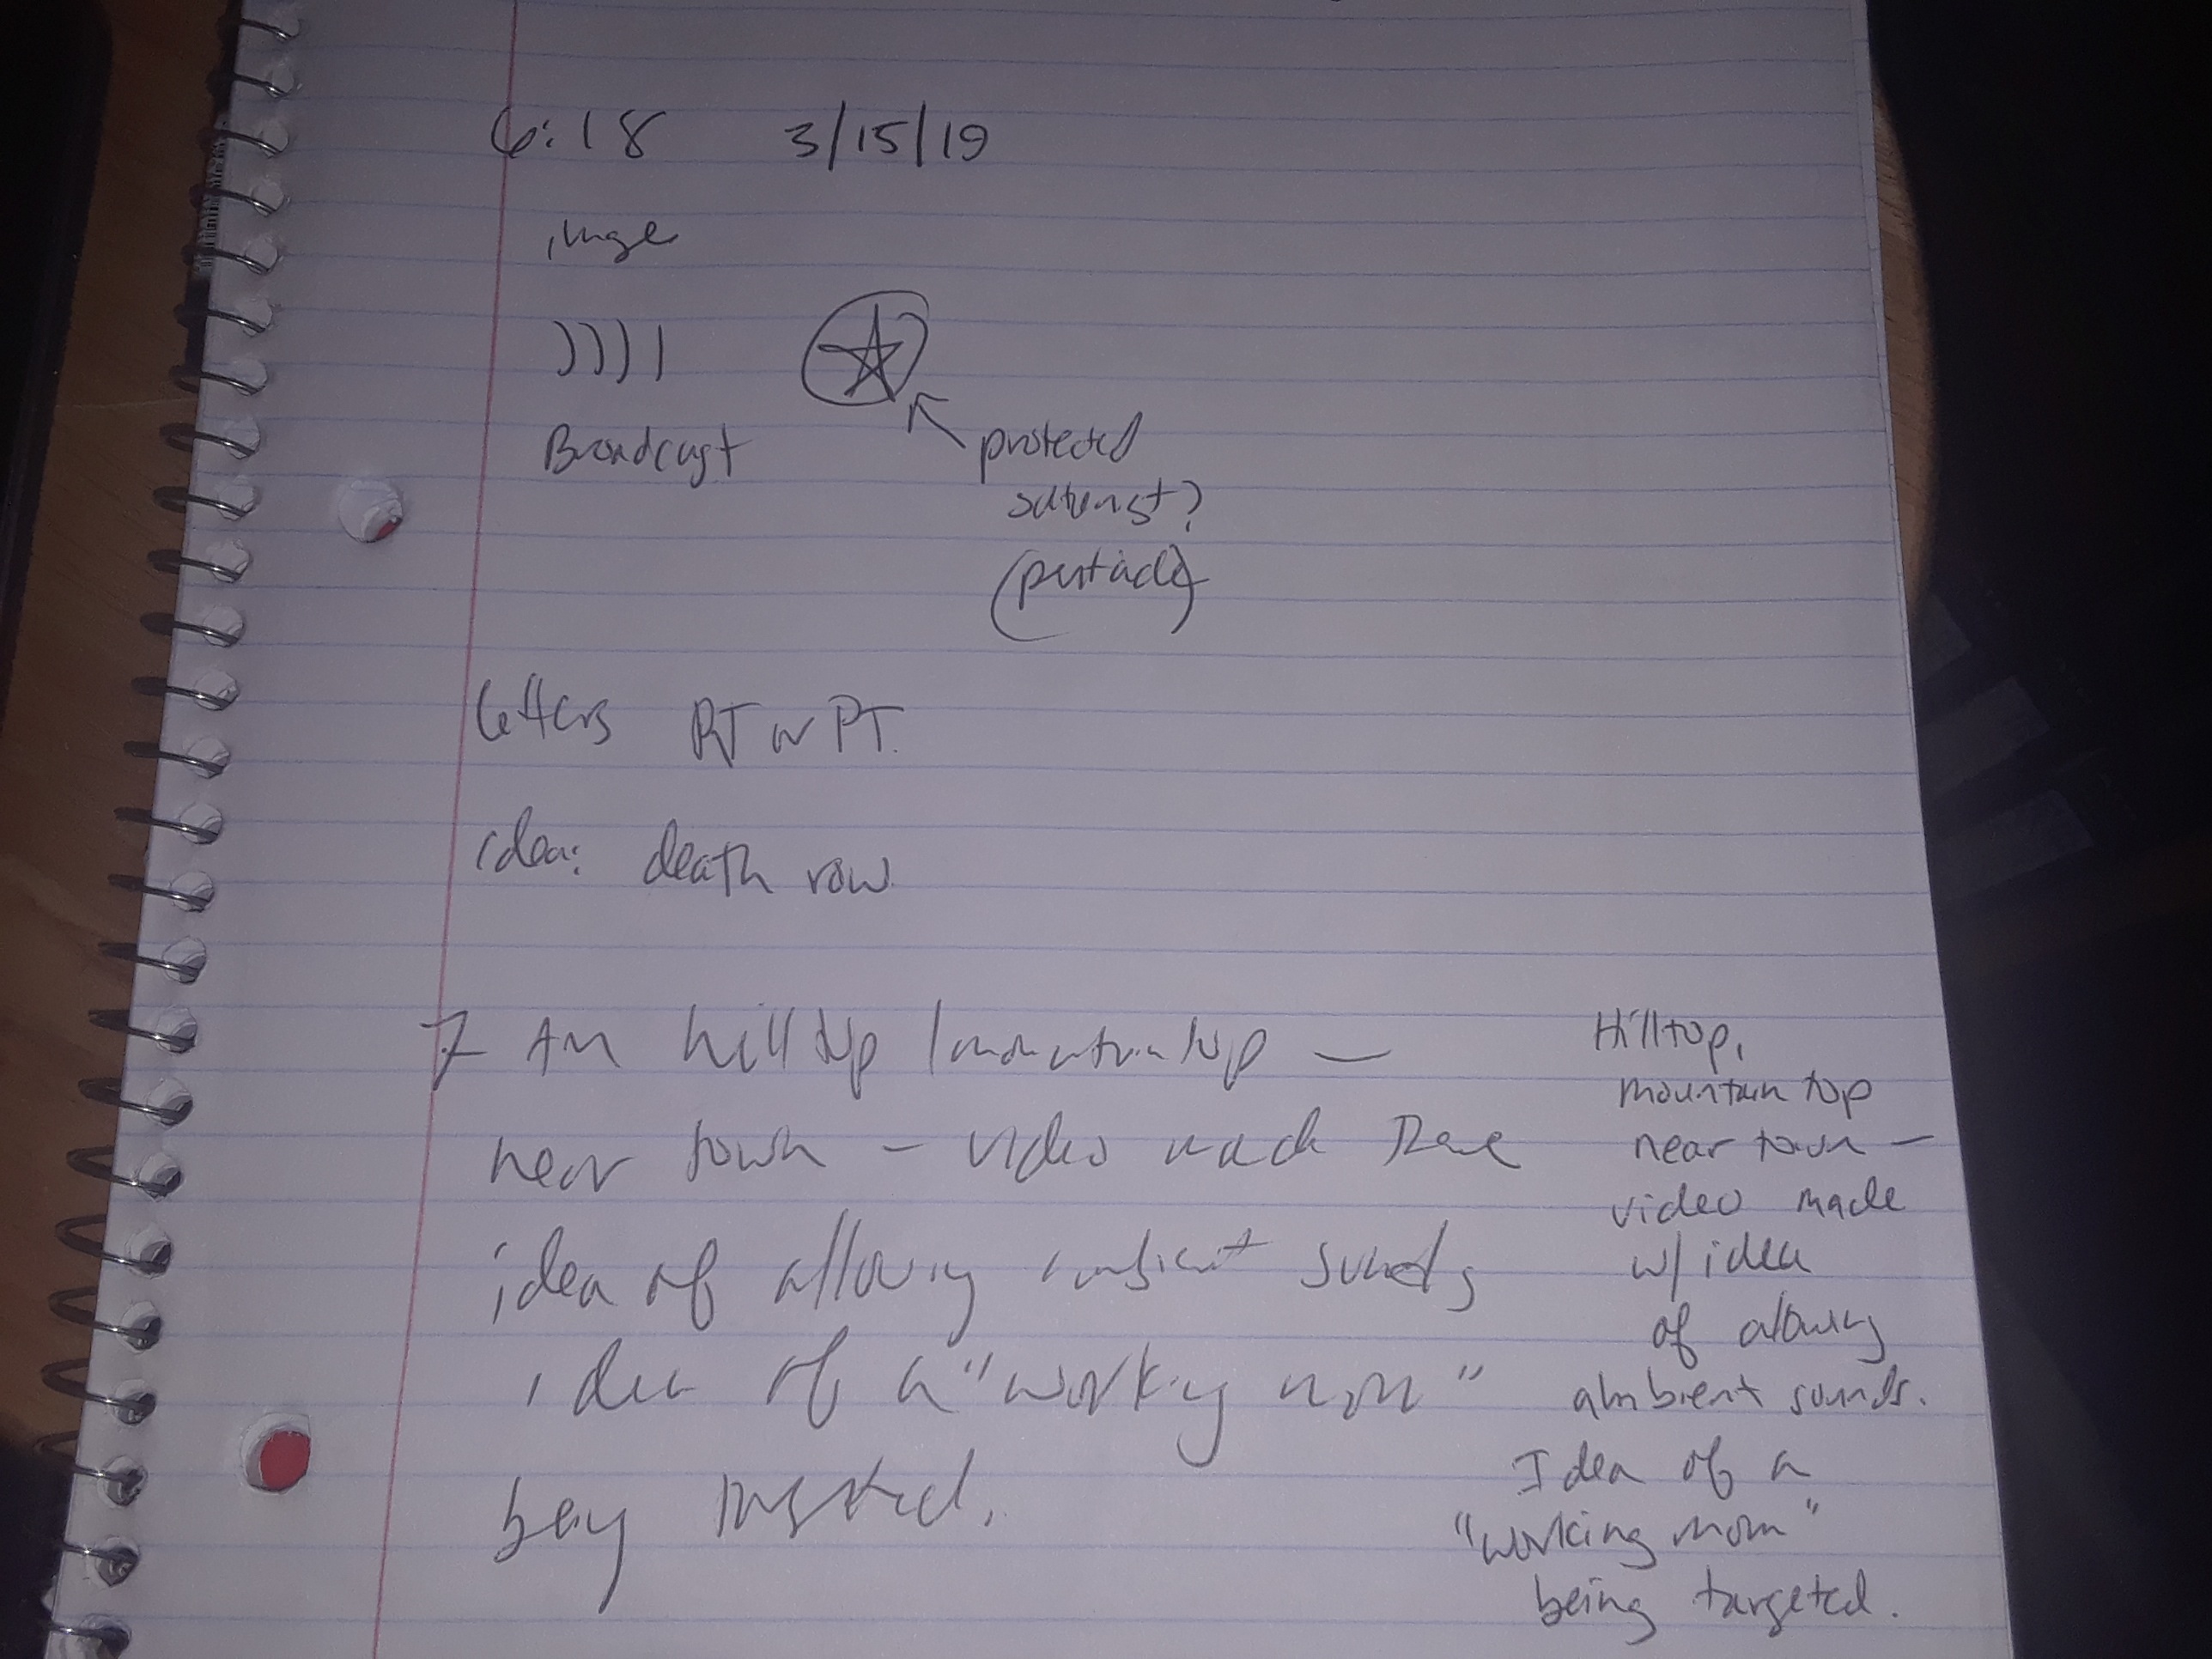 6:18 3/15/19
image
))))
Broadcast
protected
satanist?
(pentacle)
letters RT or PT.
idea: death row
7 AM hill top / mountain top —
near town – video made
idea of allowing ambient sounds
idea of a "working mom"
being targeted.
Hilltop,
mountain top
near town —
video made
w/ idea
of allowing
ambient sounds.
Idea of a
"working mom"
being targeted.